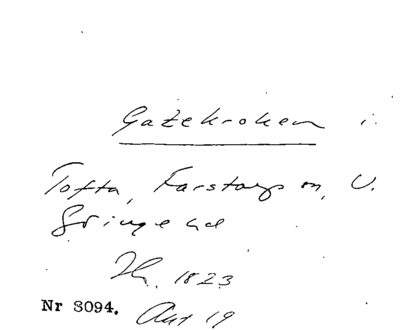 Gatekroken i
Tofta, Farstorps sn, V.
Göinge hd
Th. 1823
Nr 3094. Akt 19